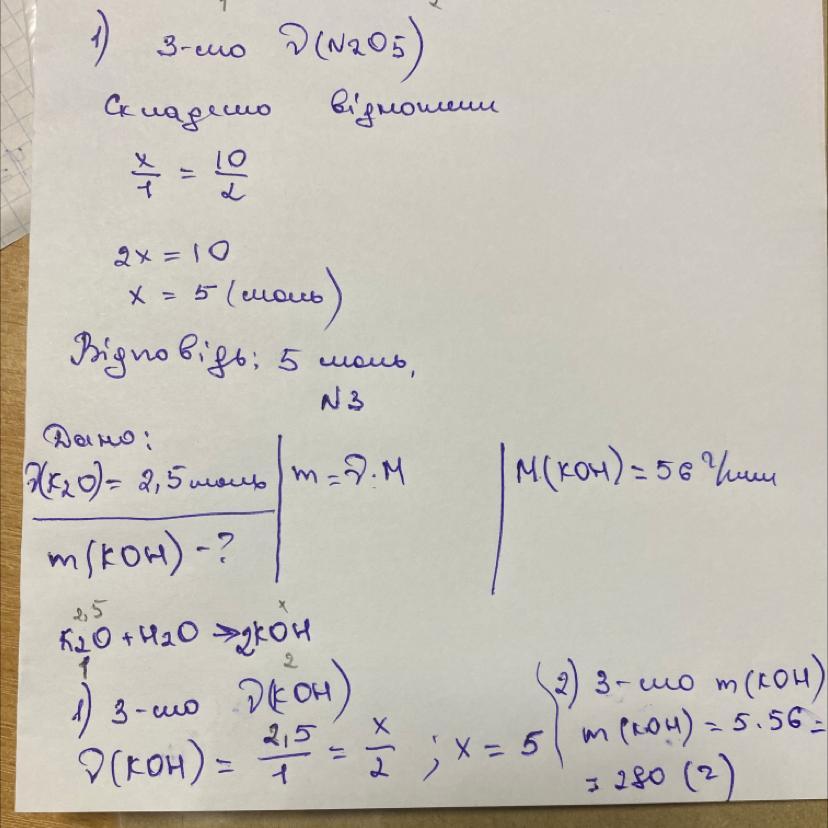 1) З-мо ν(N2O5)
Складемо відношення
x/1 = 10/2
2x = 10
x = 5 (моль)
Відповідь: 5 моль,
N3
Дано:
ν(K2O) = 2,5 моль | m = ν · M | M(KOH) = 56 г/моль
m(KOH) - ?
2,5 x
K2O + H2O → 2KOH
1 2
1) З-мо ν(KOH)
ν(KOH) = 2,5/1 = x/2 ; x = 5
2) З-мо m(KOH)
m(KOH) = 5 · 56 =
= 280 (г)